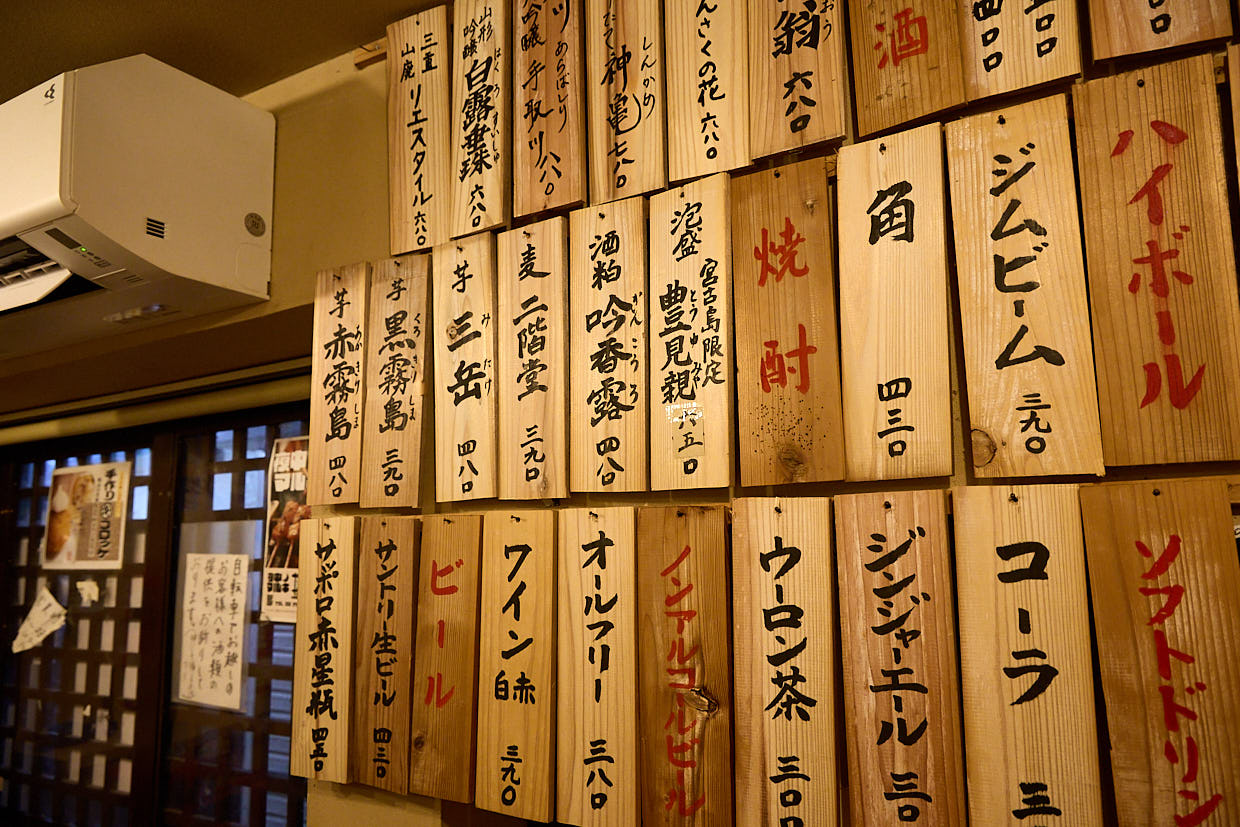 酒
翁 おう 六八〇
んさくの花 六八〇
神亀 しんかめ 七八〇
吟醸 あらばしり 手取川 八八〇
山形 吟醸 白露垂珠 はくろすいしゅ 六八〇
三重 山廃 リエスタイル 六八〇
ハイボール
ジムビーム 三九〇
角 四三〇
焼酎
泡盛 宮古島限定 豊見親 とぅゆみゃ 六五〇
酒粕 吟香露 ぎんこうろ 四八〇
麦 二階堂 三九〇
芋 三岳 みたけ 四八〇
芋 黒霧島 くろきりしま 三九〇
芋 赤霧島 あかきりしま 四八〇
ソフトドリン
コーラ 三
ジンジャーエール 三〇
ウーロン茶 三〇〇
ノンアルコールビール
オールフリー 三八〇
ワイン 赤 白 三九〇
ビール
サントリー生ビール 四三〇
サッポロ赤星瓶 四五〇
手作りコロッケ
自転車でお越しの
お客様への酒類の
提供をお断りして
おります。